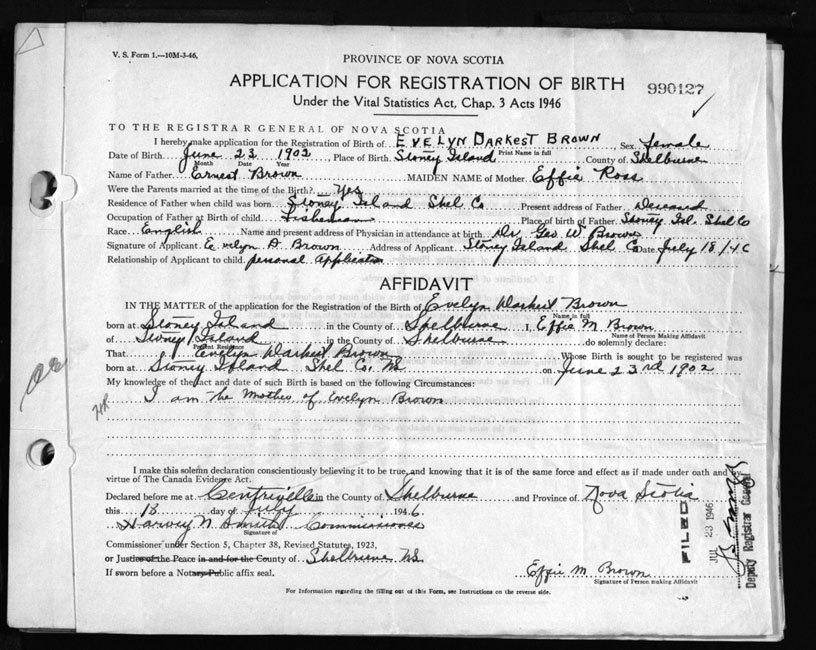 V. S. Form 1.—10M-3-46.
PROVINCE OF NOVA SCOTIA
APPLICATION FOR REGISTRATION OF BIRTH
990127
Under the Vital Statistics Act, Chap. 3 Acts 1946
TO THE REGISTRAR GENERAL OF NOVA SCOTIA
I hereby make application for the Registration of Birth of EVELYN DARKEST BROWN, Sex female
Print Name in full
Date of Birth June 23 1902, Place of Birth Stoney Island County of Shelburne
Month Date Year
Name of Father Ernest Brown MAIDEN NAME of Mother Effie Ross
Were the Parents married at the time of the Birth? Yes
Residence of Father when child was born Stoney Island Shel Co Present address of Father Deceased
Occupation of Father at Birth of child fisherman Place of birth of Father Stoney Isl. Shel Co
Race English Name and present address of Physician in attendance at birth Dr. Geo W. Brown
Signature of Applicant Evelyn D. Brown Address of Applicant Stoney Island Shel Co Date July 18/46
Relationship of Applicant to child personal
AFFIDAVIT
IN THE MATTER of the application for the Registration of the Birth of Evelyn Darkest Brown
Name in full
born at Stoney Island in the County of Shelburne I, Effie M Brown
Name of Person Making Affidavit
of Stoney Island in the County of Shelburne do solemnly declare:
Present Residence
That Evelyn Darkest Brown Whose Birth is sought to be registered was
born at Stoney Island Shel Co. NS on June 23rd 1902
My knowledge of the fact and date of such Birth is based on the following Circumstances:
I am the Mother of Evelyn Brown
I make this solemn declaration conscientiously believing it to be true, and knowing that it is of the same force and effect as if made under oath and by
virtue of The Canada Evidence Act.
Declared before me at Centreville in the County of Shelburne and Province of Nova Scotia
this 18 day of July 1946
Harvey N. Smith Commissioner
Signature of
Commissioner under Section 5, Chapter 38, Revised Statutes, 1923,
or Justice of the Peace in and for the County of Shelburne NS
If sworn before a Notary Public affix seal.
Effie M Brown
Signature of Person making Affidavit
For Information regarding the filling out of this Form, see Instructions on the reverse side.
FILED
JUL 23 1946
Deputy Registrar General